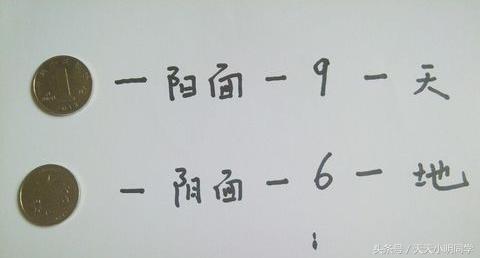 1
一 阳面 一 9 一 天
一 阴面 一 6 一 地
头条号 / 天天小明同学